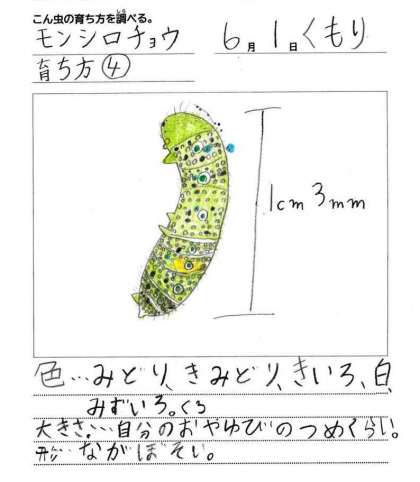 こん虫の育ち方を調べる。
モンシロチョウ 6月1日くもり
育ち方④
1cm 3mm
色…みどり、きみどり、きいろ、白、
みずいろ。くろ
大きさ…自分のおやゆびのつめくらい。
形…ながぼそい。